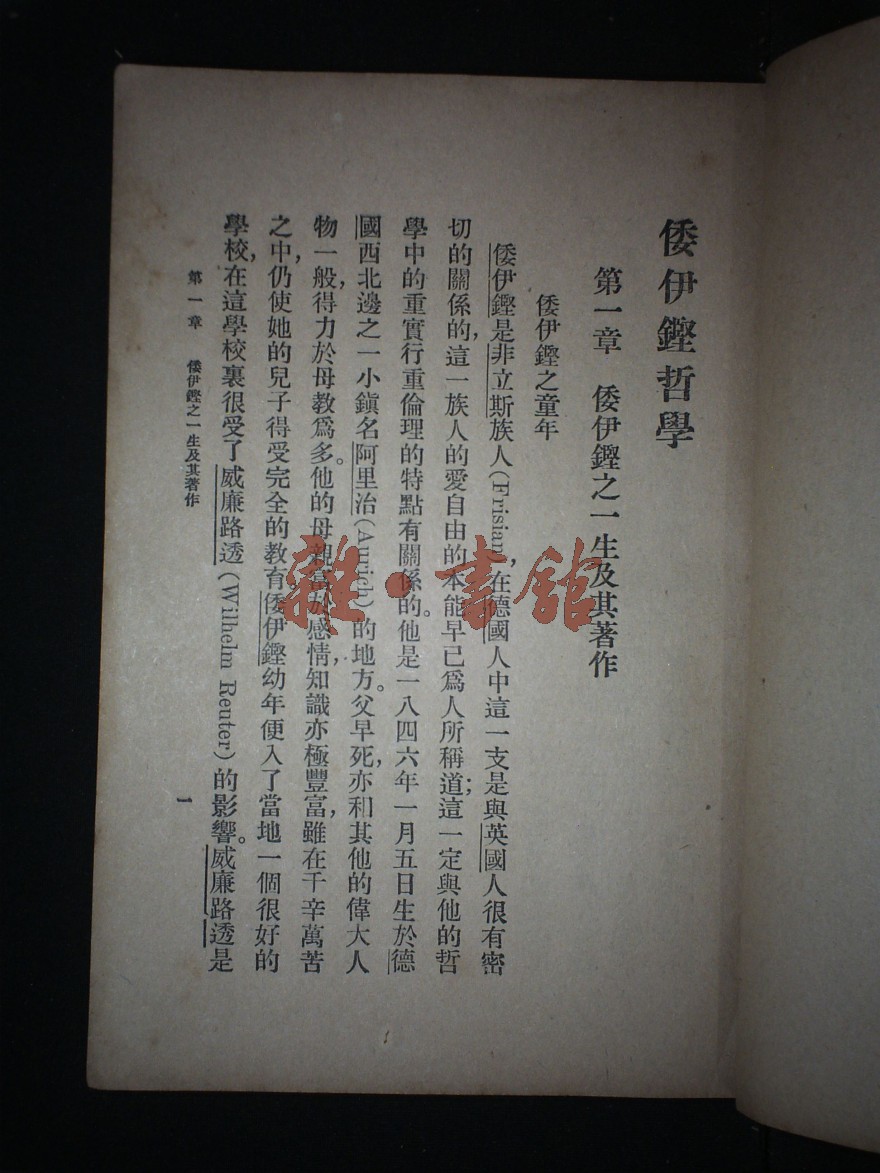 倭伊鏗哲學
第一章 倭伊鏗之一生及其著作
倭伊鏗之童年
倭伊鏗是非立斯族人(Frisian),在德國人中這一支是與英國人很有密
切的關係的,這一族人的愛自由的本能早已爲人所稱道;這一定與他的哲
學中的重實行重倫理的特點有關係的。他是一八四六年一月五日生於德
國西北邊之一小鎭名阿里治(Aurich)的地方。父早死,亦和其他的偉大人
物一般,得力於母教爲多。他的母親富於感情,知識亦極豐富,雖在千辛萬苦
之中,仍使她的兒子得受完全的教育。倭伊鏗幼年便入了當地一個很好的
學校,在這學校裏很受了威廉路透(Wilhelm Reuter)的影響。威廉路透是
第一章 倭伊鏗之一生及其著作
一
雜·書館